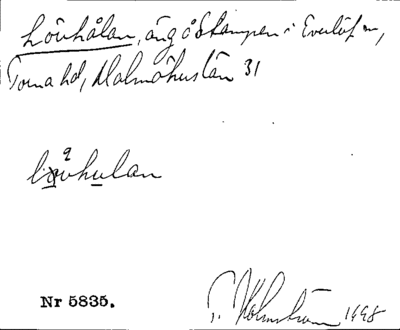 Lövhålan, äng å Stampen i Everlöf sn,
Torna hd, Malmöhus län 31
löuhulan
Nr 5835.
Holmström 1498